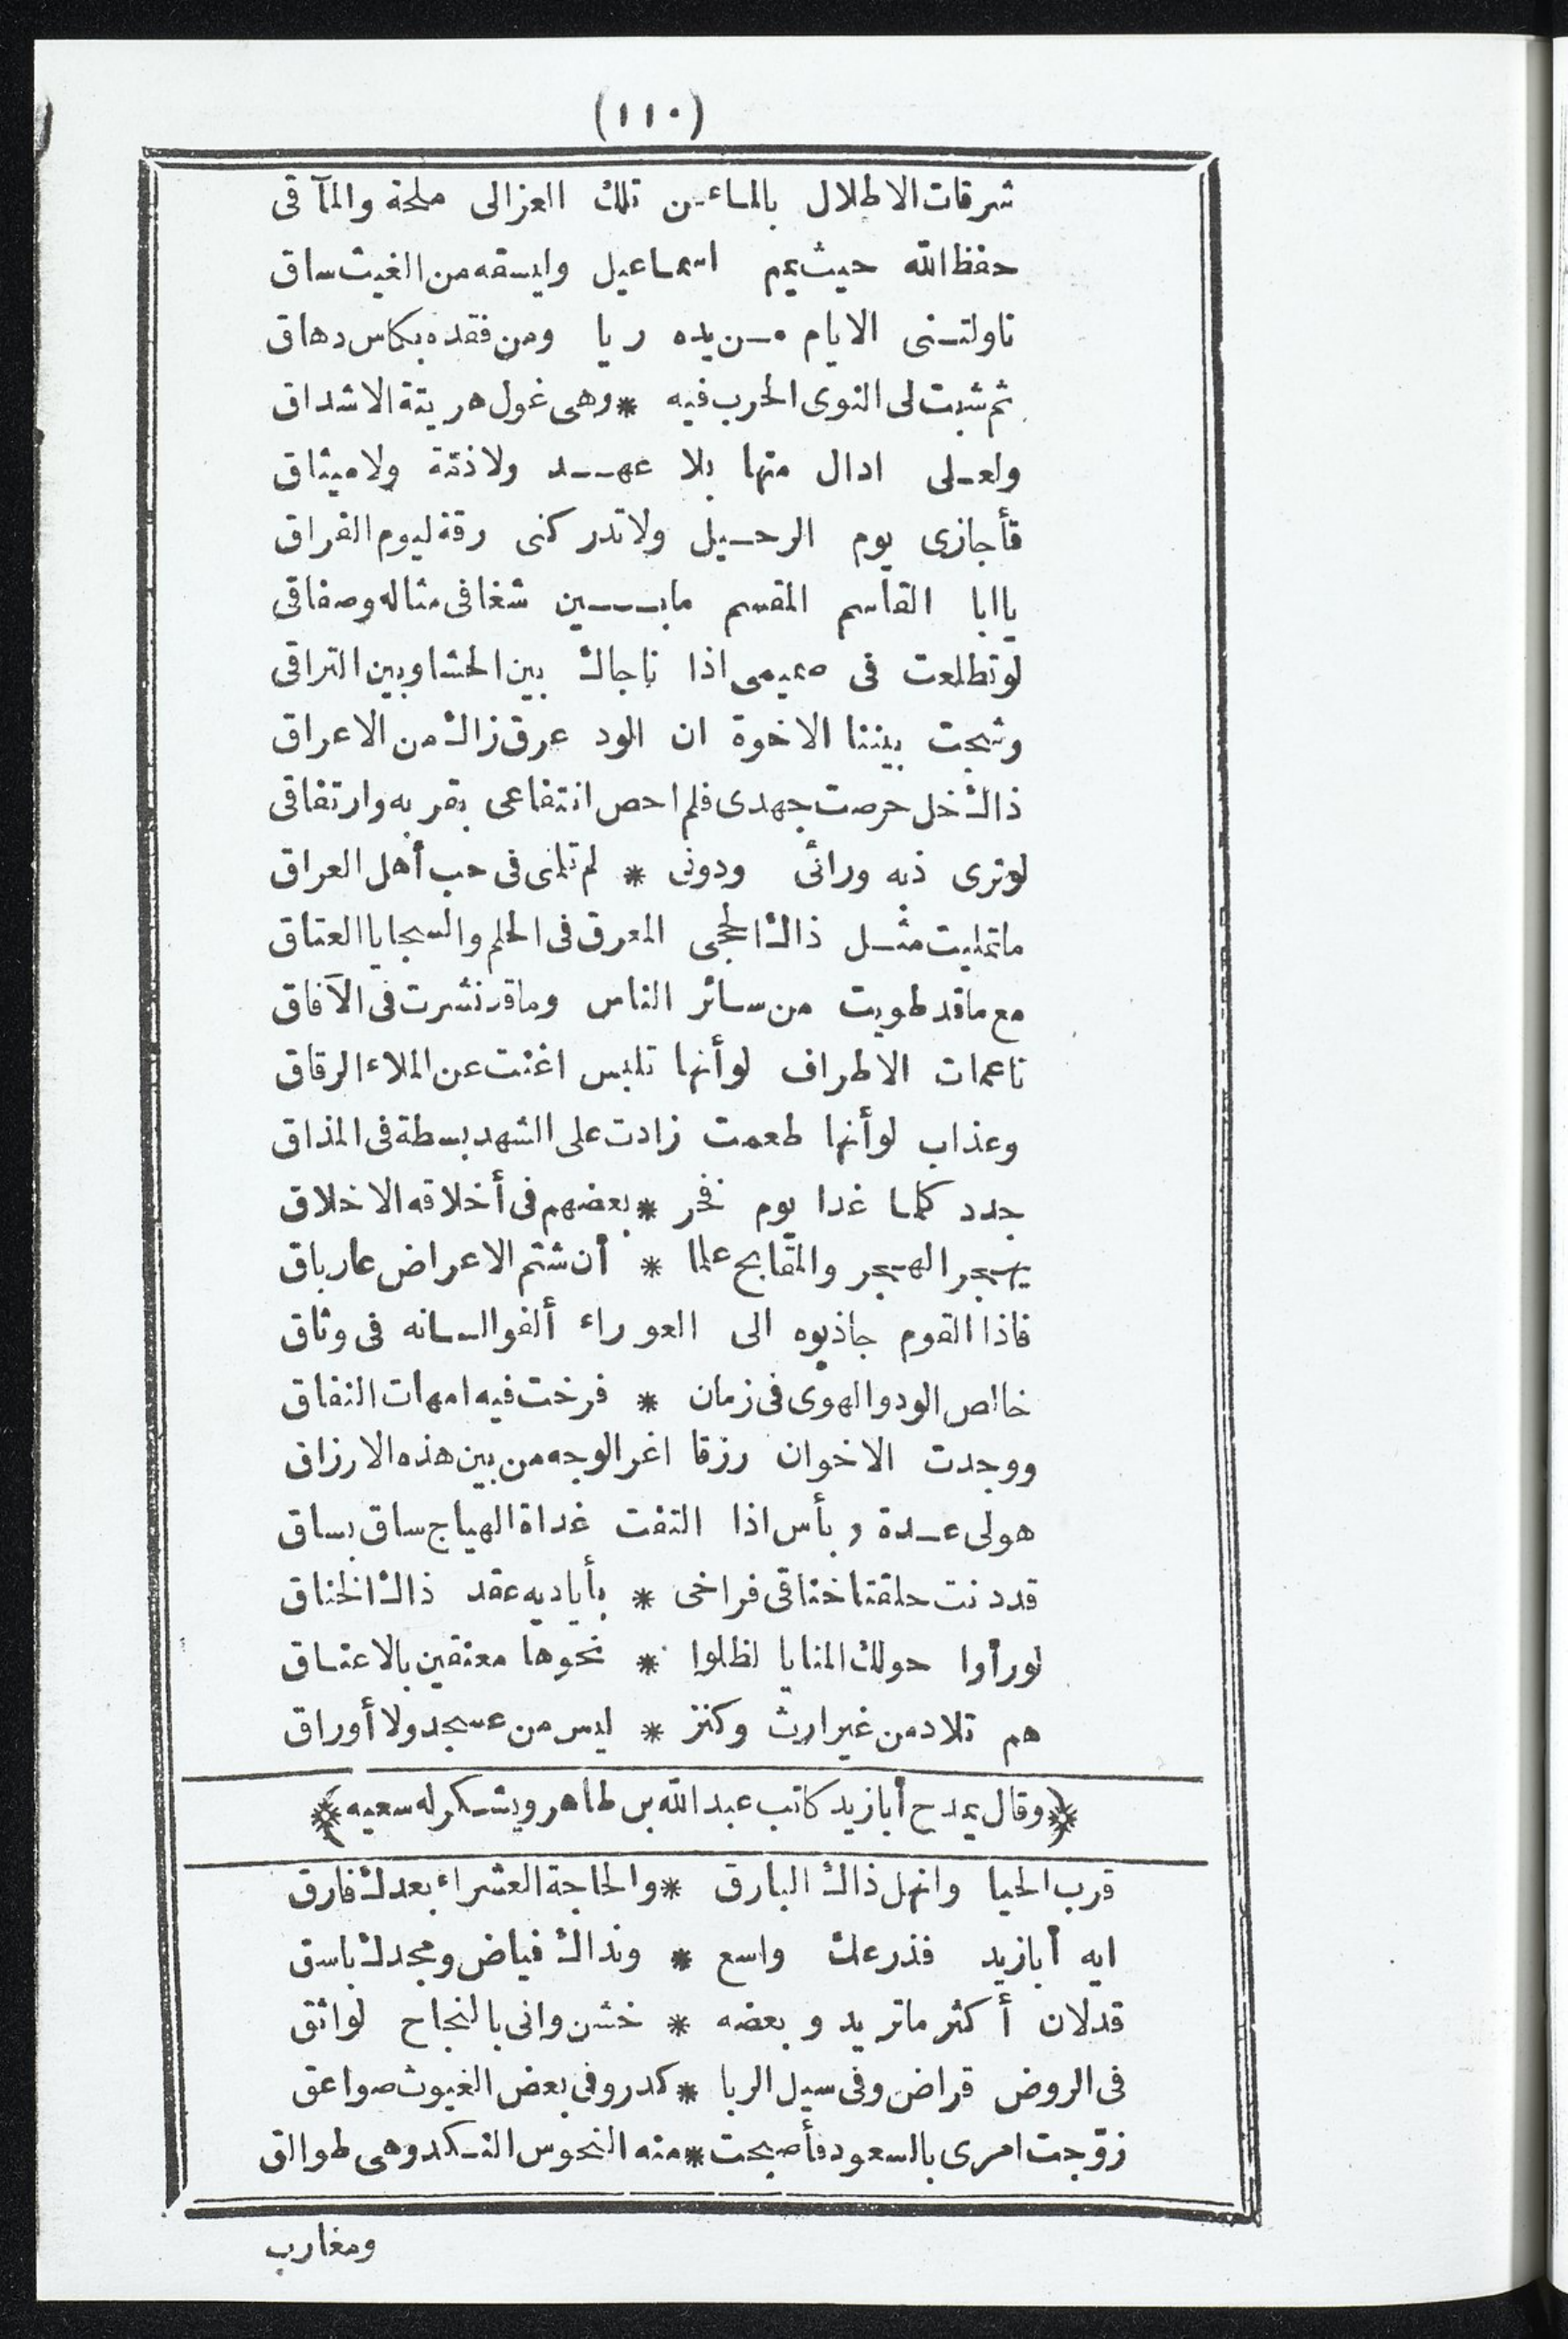 (١١٠)
شرقات الاطلال بالماء من تلك العزالى ملحة والمآقى
حفظ الله حيث يمم اسماعيل وليسقه من الغيث ساق
ناولتنى الايام من يده ريا ومن فقده بكاس دهاق
ثم شبت لى النوى الحرب فيه * وهى غول هريتة الاشداق
ولعلى ادال منها بلا عهد ولا ذمّة ولا ميثاق
فأجازى يوم الرحيل ولا تدركنى رقة ليوم الفراق
يا ابا القاسم المقسم ما بين شغافى مثاله وصفاقى
لو تطلعت فى صميمى اذا ناجاك بين الحشا وبين التراقى
وشجت بيننا الاخوة ان الود عرق زاك من الاعراق
ذاك خل حرصت جهدى فلم احص انتفاعى بقربه وارتفاقى
لو ترى ذبه ورائى ودونى * لم تلمنى فى حب أهل العراق
ما تمليت مثل ذاك الحجى المعرق فى الحلم والسجايا العتاق
مع ما قد طويت من سائر الناس وما قد نشرت فى الآفاق
ناعمات الاطراف لو أنها تلبس اغنت عن الملاء الرقاق
وعذاب لو أنها طعمت زادت على الشهد بسطة فى المذاق
جدد كلما غدا يوم فخر * بعضهم فى أخلاقه الاخلاق
يهجر الهجر والمقابح علما * أن شتم الاعراض عار باق
فاذا القوم جاذبوه الى العوراء ألفوا لسانه فى وثاق
خالص الود والهوى فى زمان * فرخت فيه امهات النفاق
ووجدت الاخوان رزقا اغر الوجه من بين هذه الارزاق
هو لى عدة وبأس اذا التفت غداة الهياج ساق بساق
قد دنت حلقتا خناقى فراخى * بأياديه عقد ذاك الخناق
لو رأوا حولك المنايا لظلوا * نحوها معنقين بالاعتاق
هم تلاد من غير ارث وكنز * ليس من عسجد ولا أوراق
﴿وقال يمدح أبا زيد كاتب عبد الله بن طاهر ويشكر له سعيه﴾
قرب الحيا وانهل ذاك البارق * والحاجة العشراء بعدك فارق
ايه أبا زيد فذرعك واسع * ونداك فياض ومجدك باسق
قد لان أكثر ما تريد وبعضه * خشن وانى بالنجاح لواثق
فى الروض قراض وفى سيل الربا * كدر وفى بعض الغيوث صواعق
زوّجت امرى بالسعود فأصبحت * منه النحوس النكد وهى طوالق
ومغارب